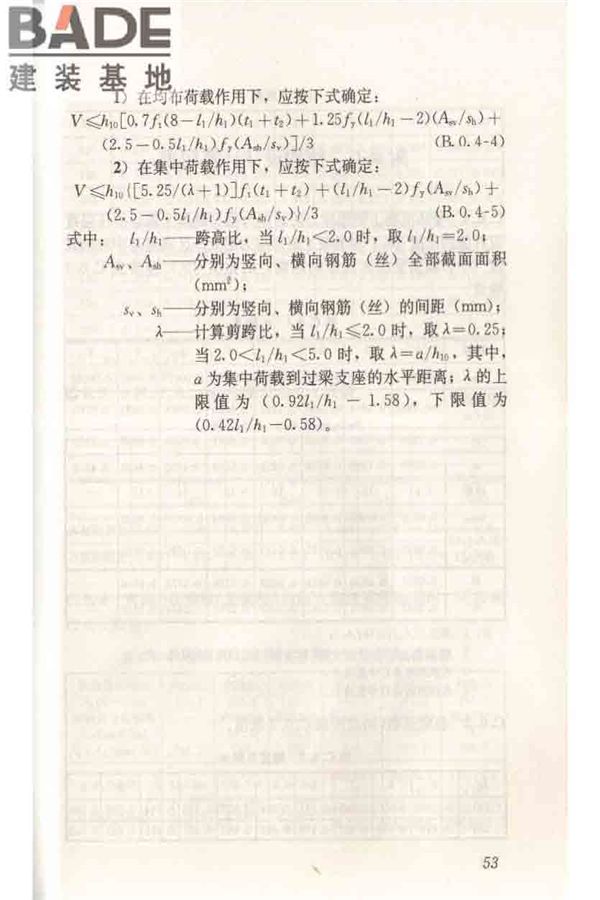 BADE
建装基地
1）在均布荷载作用下，应按下式确定：
V≤h₁₀[0.7fₜ(8－l₁/h₁)(t₁＋t₂)＋1.25fᵧ(l₁/h₁－2)(Aₛᵥ/sₕ)＋
(2.5－0.5l₁/h₁)fᵧ(Aₛₕ/sᵥ)]/3 (B.0.4-4)
2）在集中荷载作用下，应按下式确定：
V≤h₁₀{[5.25/(λ＋1)]fₜ(t₁＋t₂)＋(l₁/h₁－2)fᵧ(Aₛᵥ/sₕ)＋
(2.5－0.5l₁/h₁)fᵧ(Aₛₕ/sᵥ)}/3 (B.0.4-5)
式中：l₁/h₁——跨高比，当l₁/h₁＜2.0时，取l₁/h₁＝2.0；
Aₛᵥ、Aₛₕ——分别为竖向、横向钢筋（丝）全部截面面积
(mm²)；
sᵥ、sₕ——分别为竖向、横向钢筋（丝）的间距（mm)；
λ——计算剪跨比，当l₁/h₁≤2.0时，取λ＝0.25；
当2.0＜l₁/h₁＜5.0时，取λ＝a/h₁₀，其中，
a为集中荷载到过梁支座的水平距离；λ的上
限值为（0.92l₁/h₁－1.58)，下限值为
(0.42l₁/h₁－0.58)。
53